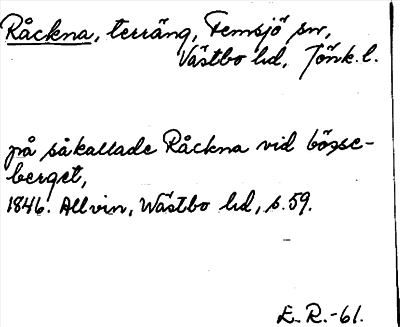 Råckna, terräng, Femsjö sn,
Västbo hd, Jönk. l.
på såkallade Råckna vid bögse-
berget,
1846. Allvin, Wästbo hd, s. 59.
E. R. -61.